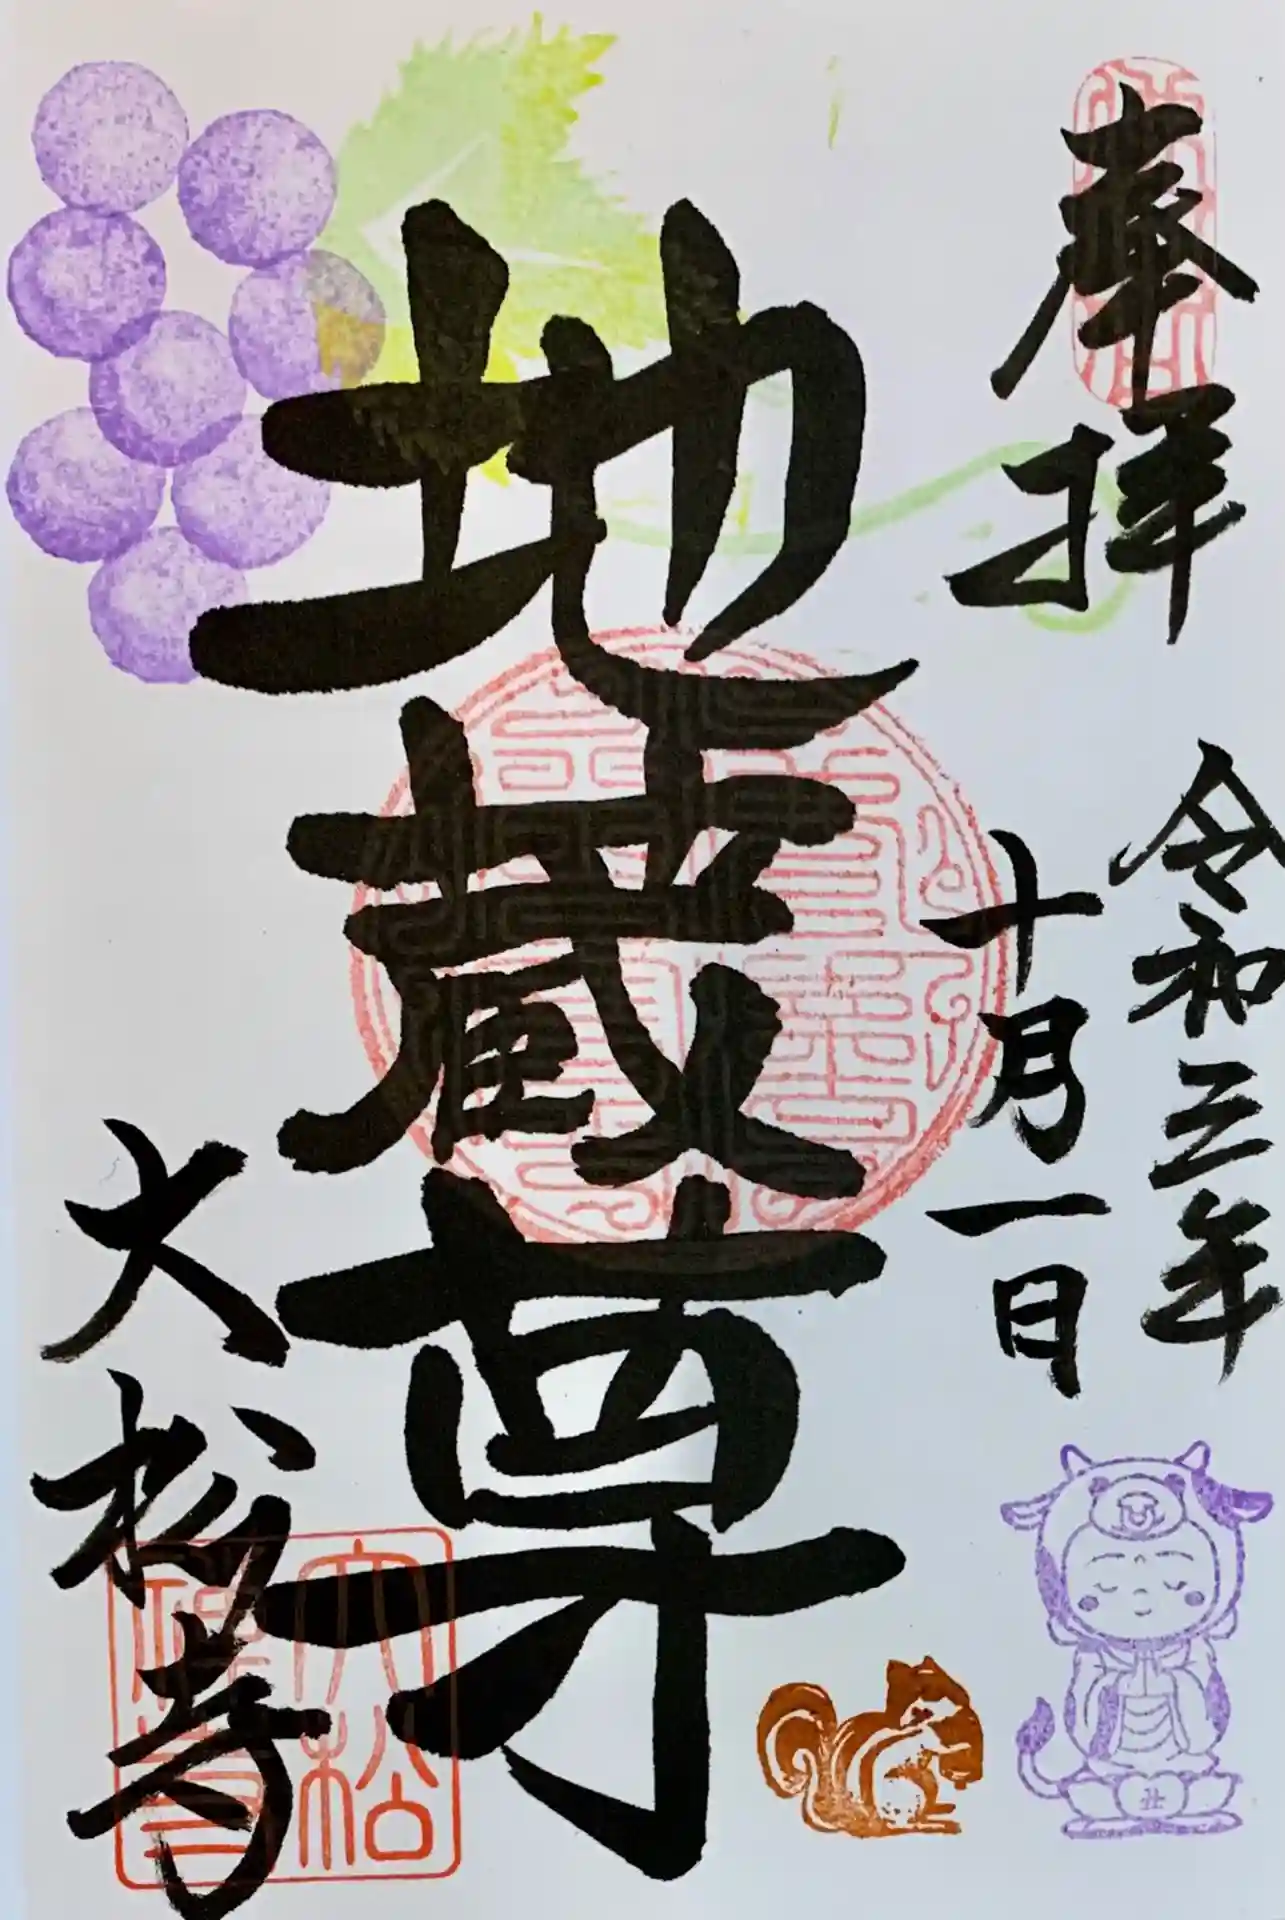 奉拝
令和三年
十月一日
地蔵尊
大松寺
丑